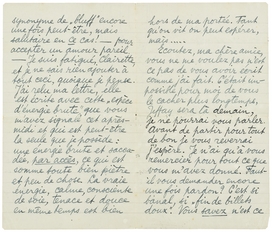 synonyme de "bluff" encore
une fois peut-être, mais
salutaire en ce cas! — pour
accepter un amour pareil.
— Je suis fatigué, Clairette
et je ne sais rien ajouter à
tout ceci, quoique je pense.
J'ai relu ma lettre, elle
est écrite avec cette espèce
d'énergie brute, que vous
m'avez signalé cet après-
midi et qui est peut-être
la seule que je possède:
une énergie brute et
par accès, ce qui est
somme toute bien piètre
et peu de chose. La vraie
énergie, calme, consciente
de soi, tenace et douce
en même temps est bien
hors de ma portée. Tant
qu'on vit on peut espérer,
mais.....
Écoutez, ma chère amie,
vous ne me voulez pas n'est
ce pas de vous avoir écrit
comme j'ai fait. C'était im-
possible pour moi de vous
le cacher plus longtemps.
sera là demain,
je ne pourrai vous parler.
Avant de partir pour tout
de bon je vous reverrai
j'espère. Je n'ai qu'à vous
remercier pour tout ce que
vous m'avez donné. Faut-
il vous demander encore
une fois pardon? C'est si
banal, fi de billets
doux! Vous savez n'est ce